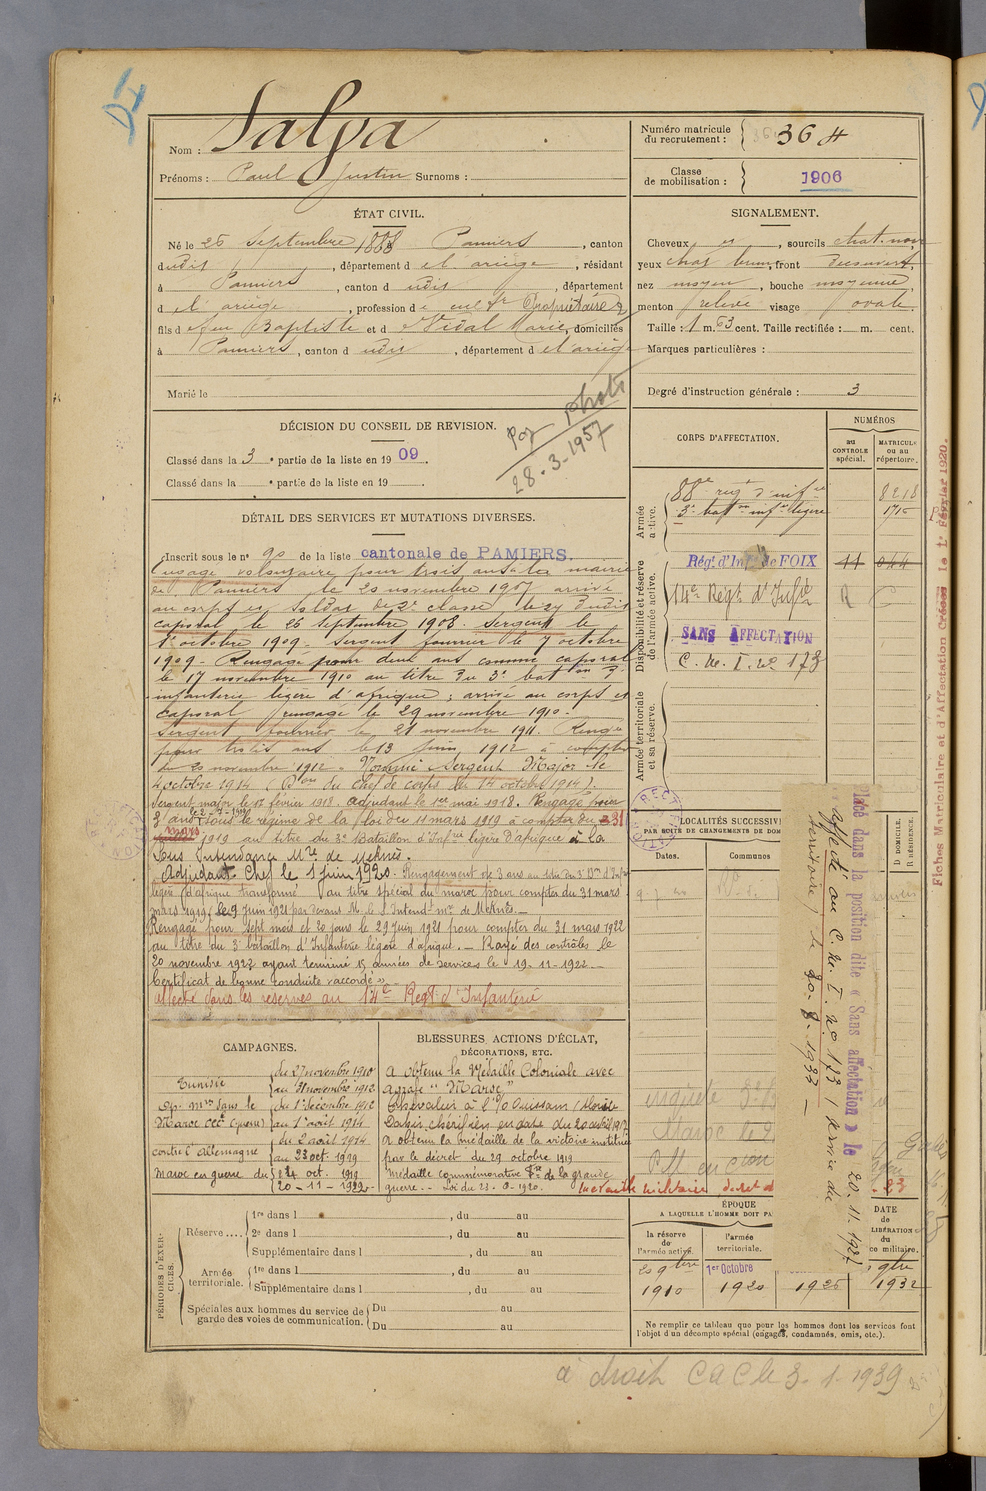 Nom : Salga
Prénoms : Paul Justin Surnoms :
Numéro matricule du recrutement : 364
Classe de mobilisation : 1906
ÉTAT CIVIL.
Né le 26 Septembre 1888 Pamiers, canton
dudit, département de l'ariège, résidant
à Pamiers, canton dudit, département
de l'ariège, profession de cult Propriétaire
fils de feu Baptiste et de Vidal Marie, domiciliés
à Pamiers, canton dudit, département de l'ariège
Marié le
SIGNALEMENT.
Cheveux et, sourcils chat. noir
yeux chat brun, front découvert,
nez moyen, bouche moyenne,
menton relevé visage ovale.
Taille : 1 m. 63 cent. Taille rectifiée : m. cent.
Marques particulières :
Degré d'instruction générale : 3
DÉCISION DU CONSEIL DE REVISION.
Classé dans la 3e partie de la liste en 1909.
Classé dans la e partie de la liste en 19
photo
28-3-1957
DÉTAIL DES SERVICES ET MUTATIONS DIVERSES.
Inscrit sous le n° 90 de la liste cantonale de PAMIERS.
Engagé volontaire pour trois ans à la mairie
de Pamiers le 20 novembre 1907 arrivé
au corps et soldat de 2e classe le 27 dudit
caporal le 26 septembre 1908. Sergent le
1er octobre 1909. Sergent fourrier le 7 octobre
1909 - Rengagé pour deux ans comme caporal
le 17 novembre 1910 au titre du 3e baton d'
infanterie légère d'afrique ; arrivé au corps et
caporal rengagé le 29 novembre 1910.
Sergent fourrier le 21 novembre 1911. Rengagé
pour trois ans le 13 Juin 1912 à compter
du 20 novembre 1912. Nommé Sergent Major le
4 octobre 1914 (Don du chef de corps du 14 octobre 1914).
Sergent major le 12 février 1918. adjudant le 1er mai 1918. Rengagé pour
3 ans sous le régime de la loi du 11 mars 1919 à compter du 31
mars 1919 au titre du 3e Bataillon d'Infrie légère d'afrique à la
Sous Intendance Mre de Meknès.
Adjudant Chef le 1 juin 1920. Rengagement de 3 ans au titre du 3e Bon d'Inf
légère d'afrique transformé au titre spécial du maroc pour compter du 31 mars
mars 1919 le 9 juin 1921 par devant M. le S Intendt mre de Meknès.
Rengagé pour sept mois et 20 jours le 29 juin 1921 pour compter du 31 mars 1922
au titre du 3e bataillon d'Infanterie légère d'afrique. - Rayé des contrôles le
20 novembre 1922 ayant terminé 15 années de services le 19-11-1922.
Certificat de bonne conduite "accordé".
affecté dans les réserves au 14e Régt d'Infanterie
CORPS D'AFFECTATION.
NUMÉROS
au CONTROLE spécial.
MATRICULE ou au répertoire.
Armée active.
88e regt d'infie 8218
3e baton infie légère 1715
Disponibilité et réserve de l'armée active.
Régt d'Inf. de FOIX 11 044
14e Régt d'Infie R C
SANS AFFECTATION
C. M. I. n° 173
Armée territoriale et sa réserve.
LOCALITÉS SUCCESSIVES
PAR SUITE DE CHANGEMENTS DE DOM
Dates.
Communes
D DOMICILE.
R RÉSIDENCE.
Placé dans la position dite « Sans affectation » le 20.11.1927
affecté au C. M. I. n° 173 (service du
territoire) le 20-8-1933
Fiches Matriculaire et d'Affectation Créées le 1er Février 1920.
CAMPAGNES.
Tunisie du 27 novembre 1910
au 31 novembre 1912
Opr mres dans le du 1er décembre 1912
Maroc occl (guerre) au 1er août 1914
contre l'Allemagne du 2 août 1914
au 23 oct. 1919
Maroc en guerre du 24 oct. 1919
20-11-1922
BLESSURES, ACTIONS D'ÉCLAT,
DÉCORATIONS, ETC.
A obtenu la Médaille Coloniale avec
agrafe "Maroc"
Chevalier à l'O/ Ouissam Alaouite
Dahir chérifien en date du 20 avril 1917
A obtenu la médaille de la victoire instituée
par le décret du 29 octobre 1919
Médaille commémorative fse de la grande
guerre. - Loi du 23-6-1920. Médaille militaire
PÉRIODES D'EXERCICES.
Réserve....
1re dans l , du au
2e dans l , du au
Supplémentaire dans l , du au
Armée territoriale.
1re dans l , du au
Supplémentaire dans l , du au
Spéciales aux hommes du service de garde des voies de communication.
Du au
Du au
ÉPOQUE
A LAQUELLE L'HOMME DOIT PA
la réserve de l'armée active.
l'armée territoriale.
DATE de LIBÉRATION du ce militaire.
20 9bre 1910
1er Octobre 1920
1926
9bre 1932
Ne remplir ce tableau que pour les hommes dont les services font
l'objet d'un décompte spécial (engagés, condamnés, omis, etc.).
à droit C a C le 3-1-1939